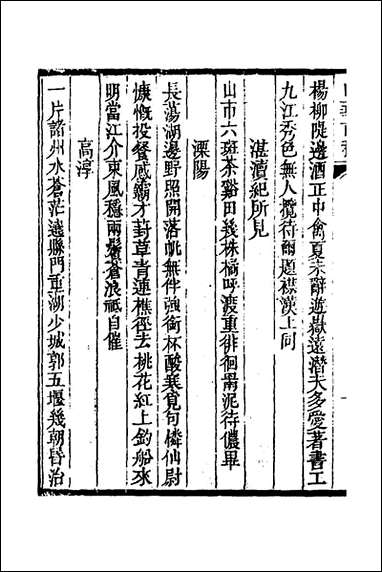 楊柳隄邊酒正中禽夏宗辭遊嶽遠潛夫多愛著書工
九江秀色無人攬待爾題襟漢上同
湛瀆紀所見
山市六斑茶谿田幾株橘呼渡重徘徊雨泥待儂畢
溧陽
長蕩湖邊野照開落帆無伴強銜杯酸寒覓句憐仙尉
慷慨投餐感霸才封草青連樵徑去桃花紅上釣船來
明當江介東風穩兩鬢蒼浪祗自催
高淳
一片詺州水蒼茫遶縣門重湖少城郭五堰幾朝昏治